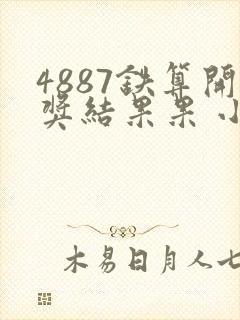 4887鉄算開
奖結果果小
木易日月人七